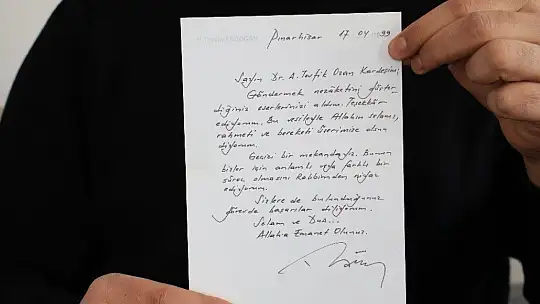 Pınarhisar 17 04 99
Sayın Dr. A. Tevfik Ozan Kardeşim;
Göndermek nezâketini göster-
diğiniz eserlerinizi aldım. Teşekkür
ediyorum. Bu vesileyle Allahın selamı,
rahmeti ve bereketi üzerimize olsun
diyorum.
Geçici bir mekandayız. Bunun
bizler için anlamlı veya farklı bir
süreç olmasını Rabbimden niyaz
ediyorum.
Sizlere de bulunduğunuz
görevde başarılar diliyorum.
Selam ve Dua...
Allaha Emanet Olunuz.